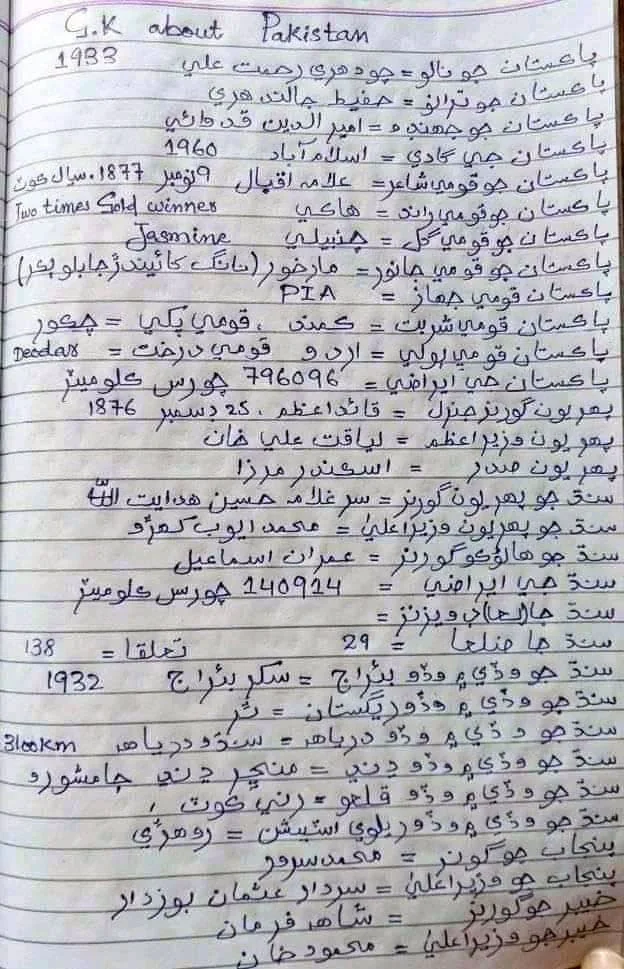 G.K about Pakistan
پاڪستان جو نالو = چوڌري رحمت علي 1933
پاڪستان جو ترانو = حفيظ جالندهري
پاڪستان جو جهنڊو = امير الدين قدوائي
پاڪستان جي گادي = اسلام آباد 1960
پاڪستان جو قومي شاعر = علامه اقبال 9 نومبر 1877. سيال ڪوٽ
پاڪستان جو قومي راند = هاڪي Two times Gold winner
پاڪستان جو قومي گل = چنبيلي Jasmine
پاڪستان جو قومي جانور = مارخور (نانگ کائيندڙ جابلو ٻڪر)
پاڪستان قومي جهاز = PIA
پاڪستان قومي شربت = ڪمند ، قومي پکي = چڪور
پاڪستان قومي ٻولي = اردو قومي درخت = Deodar
پاڪستان جي ايراضي = 796096 چورس ڪلوميٽر
پهريون گورنر جنرل = قائداعظم ، 25 دسمبر 1876
پهريون وزيراعظم = لياقت علي خان
پهريون صدر = اسڪندر مرزا
سنڌ جو پهريون گورنر = سر غلام حسين هدايت الله
سنڌ جو پهريون وزيراعليٰ = محمد ايوب کهڙو
سنڌ جو هاڻوڪو گورنر = عمران اسماعيل
سنڌ جي ايراضي = 140914 چورس ڪلوميٽر
سنڌ جا ڊويزنز =
سنڌ جا ضلعا = 29 تعلقا = 138
سنڌ جو وڏي ۾ وڏو بئراج = سکر بئراج 1932
سنڌ جو وڏي ۾ وڏو ريگستان = ٿر
سنڌ جو وڏي ۾ وڏو درياهه = سنڌو درياهه 3100km
سنڌ جو وڏي ۾ وڏو ڍنڍ = منڇر ڍنڍ ڄامشورو
سنڌ جو وڏي ۾ وڏو قلعو = رني ڪوٽ ،
سنڌ جو وڏي ۾ وڏو ريلوي اسٽيشن = روهڙي
پنجاب جو گورنر = محمد سرور
پنجاب جو وزيراعليٰ = سردار عثمان بوزدار
خيبر جو گورنر = شاهه فرمان
خيبر جو وزيراعليٰ = محمود خان